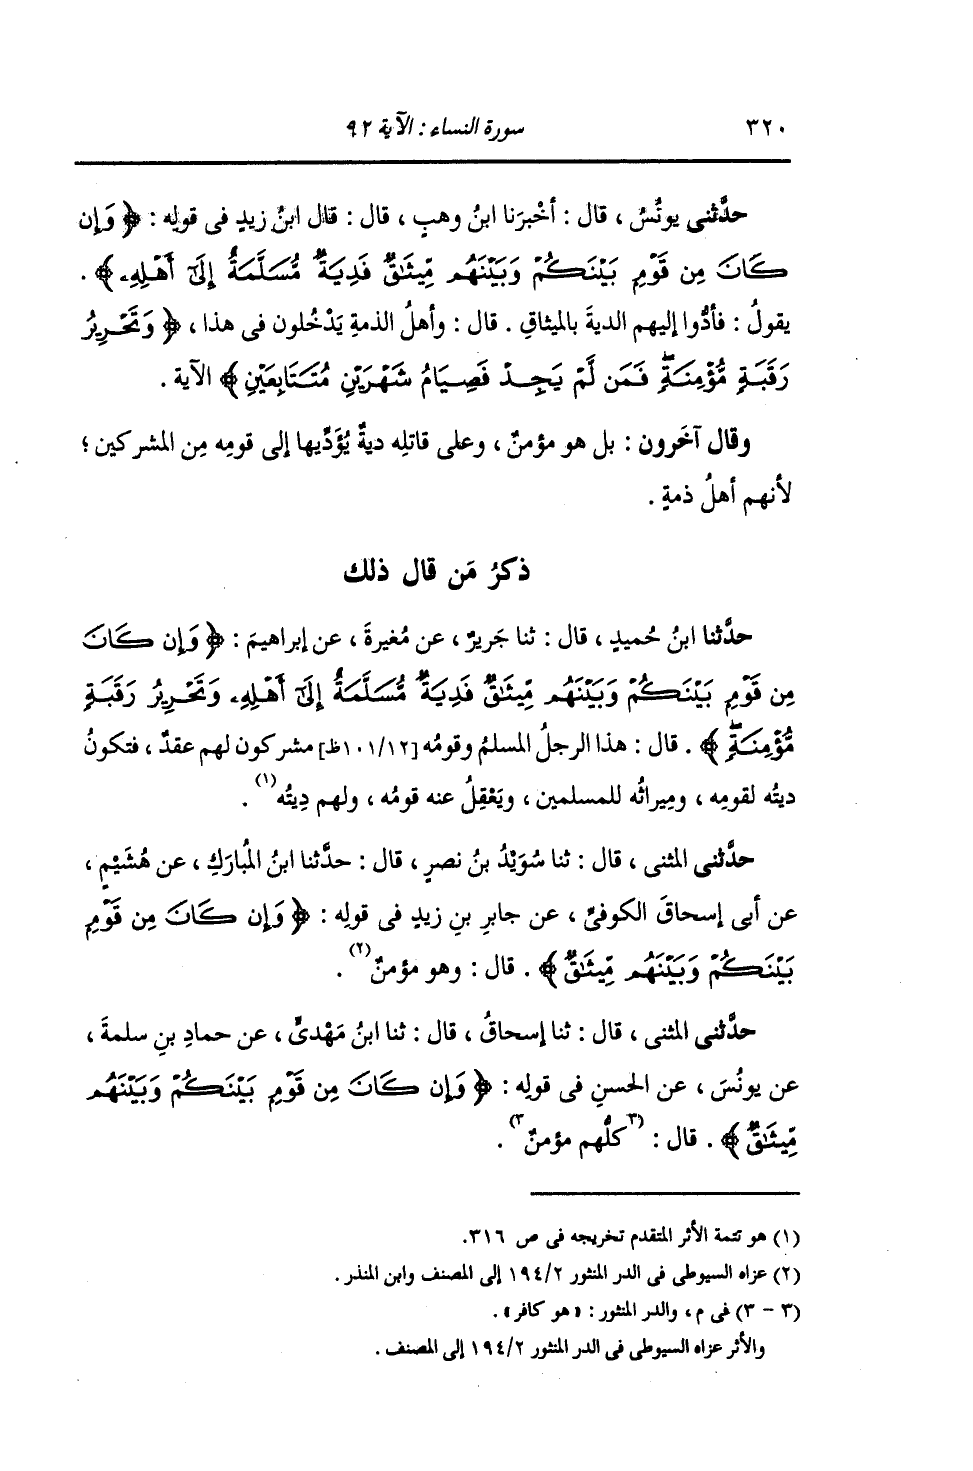 ٣٢٠ سورة النساء : الآية ٩٢
حدَّثنى يونُسُ ، قال : أخْبرَنا ابنُ وهبٍ ، قال : قال ابنُ زيدٍ فى قولِه : ﴿ وَإِن
كَانَ مِن قَوْمٍ بَيْنَكُمْ وَبَيْنَهُم مِّيثَاقٌ فَدِيَةٌ مُّسَلَّمَةٌ إِلَىٰٓ أَهْلِهِۦ ﴾ .
يقولُ : فأدُّوا إليهم الديةَ بالميثاقِ . قال : وأهلُ الذمةِ يَدْخُلون فى هذا ، ﴿ وَتَحْرِيرُ
رَقَبَةٍ مُّؤْمِنَةٍۖ فَمَن لَّمْ يَجِدْ فَصِيَامُ شَهْرَيْنِ مُتَتَابِعَيْنِ ﴾ الآية .
وقال آخَرون : بل هو مؤمنٌ ، وعلى قاتلِه ديةٌ يُؤَدِّيها إلى قومِه مِن المشركين ؛
لأنهم أهلُ ذمةٍ .
ذكرُ مَن قال ذلك
حدَّثنا ابنُ حُميدٍ ، قال : ثنا جَريرٌ ، عن مُغيرةَ ، عن إبراهيمَ : ﴿ وَإِن كَانَ
مِن قَوْمٍ بَيْنَكُمْ وَبَيْنَهُم مِّيثَاقٌ فَدِيَةٌ مُّسَلَّمَةٌ إِلَىٰٓ أَهْلِهِۦ وَتَحْرِيرُ رَقَبَةٍ
مُّؤْمِنَةٍۖ ﴾ . قال : هذا الرجلُ المسلمُ وقومُه [١٠١/١٢ظ] مشركون لهم عقدٌ ، فتكونُ
ديتُه لقومِه ، ومِيراثُه للمسلمين ، ويَعْقِلُ عنه قومُه ، ولهم دِيتُه(١) .
حدَّثنى المثنى ، قال : ثنا سُوَيْدُ بنُ نصرٍ ، قال : حدَّثنا ابنُ المُبارَكِ ، عن هُشَيْمٍ ،
عن أبى إسحاقَ الكوفىِّ ، عن جابرِ بنِ زيدٍ فى قولِه : ﴿ وَإِن كَانَ مِن قَوْمٍ
بَيْنَكُمْ وَبَيْنَهُم مِّيثَاقٌ ﴾ . قال : وهو مؤمنٌ(٢) .
حدَّثنى المثنى ، قال : ثنا إسحاقُ ، قال : ثنا ابنُ مَهْدىٍّ ، عن حمادِ بنِ سلمةَ ،
عن يونُسَ ، عن الحسنِ فى قولِه : ﴿ وَإِن كَانَ مِن قَوْمٍ بَيْنَكُمْ وَبَيْنَهُم
مِّيثَاقٌ ﴾ . قال : (٣كلُّهم مؤمنٌ٣) .
(١) هو تتمة الأثر المتقدم تخريجه فى ص ٣١٦.
(٢) عزاه السيوطى فى الدر المنثور ١٩٤/٢ إلى المصنف وابن المنذر .
(٣ - ٣) فى م ، والدر المنثور : « هو كافر » .
والأثر عزاه السيوطى فى الدر المنثور ١٩٤/٢ إلى المصنف .